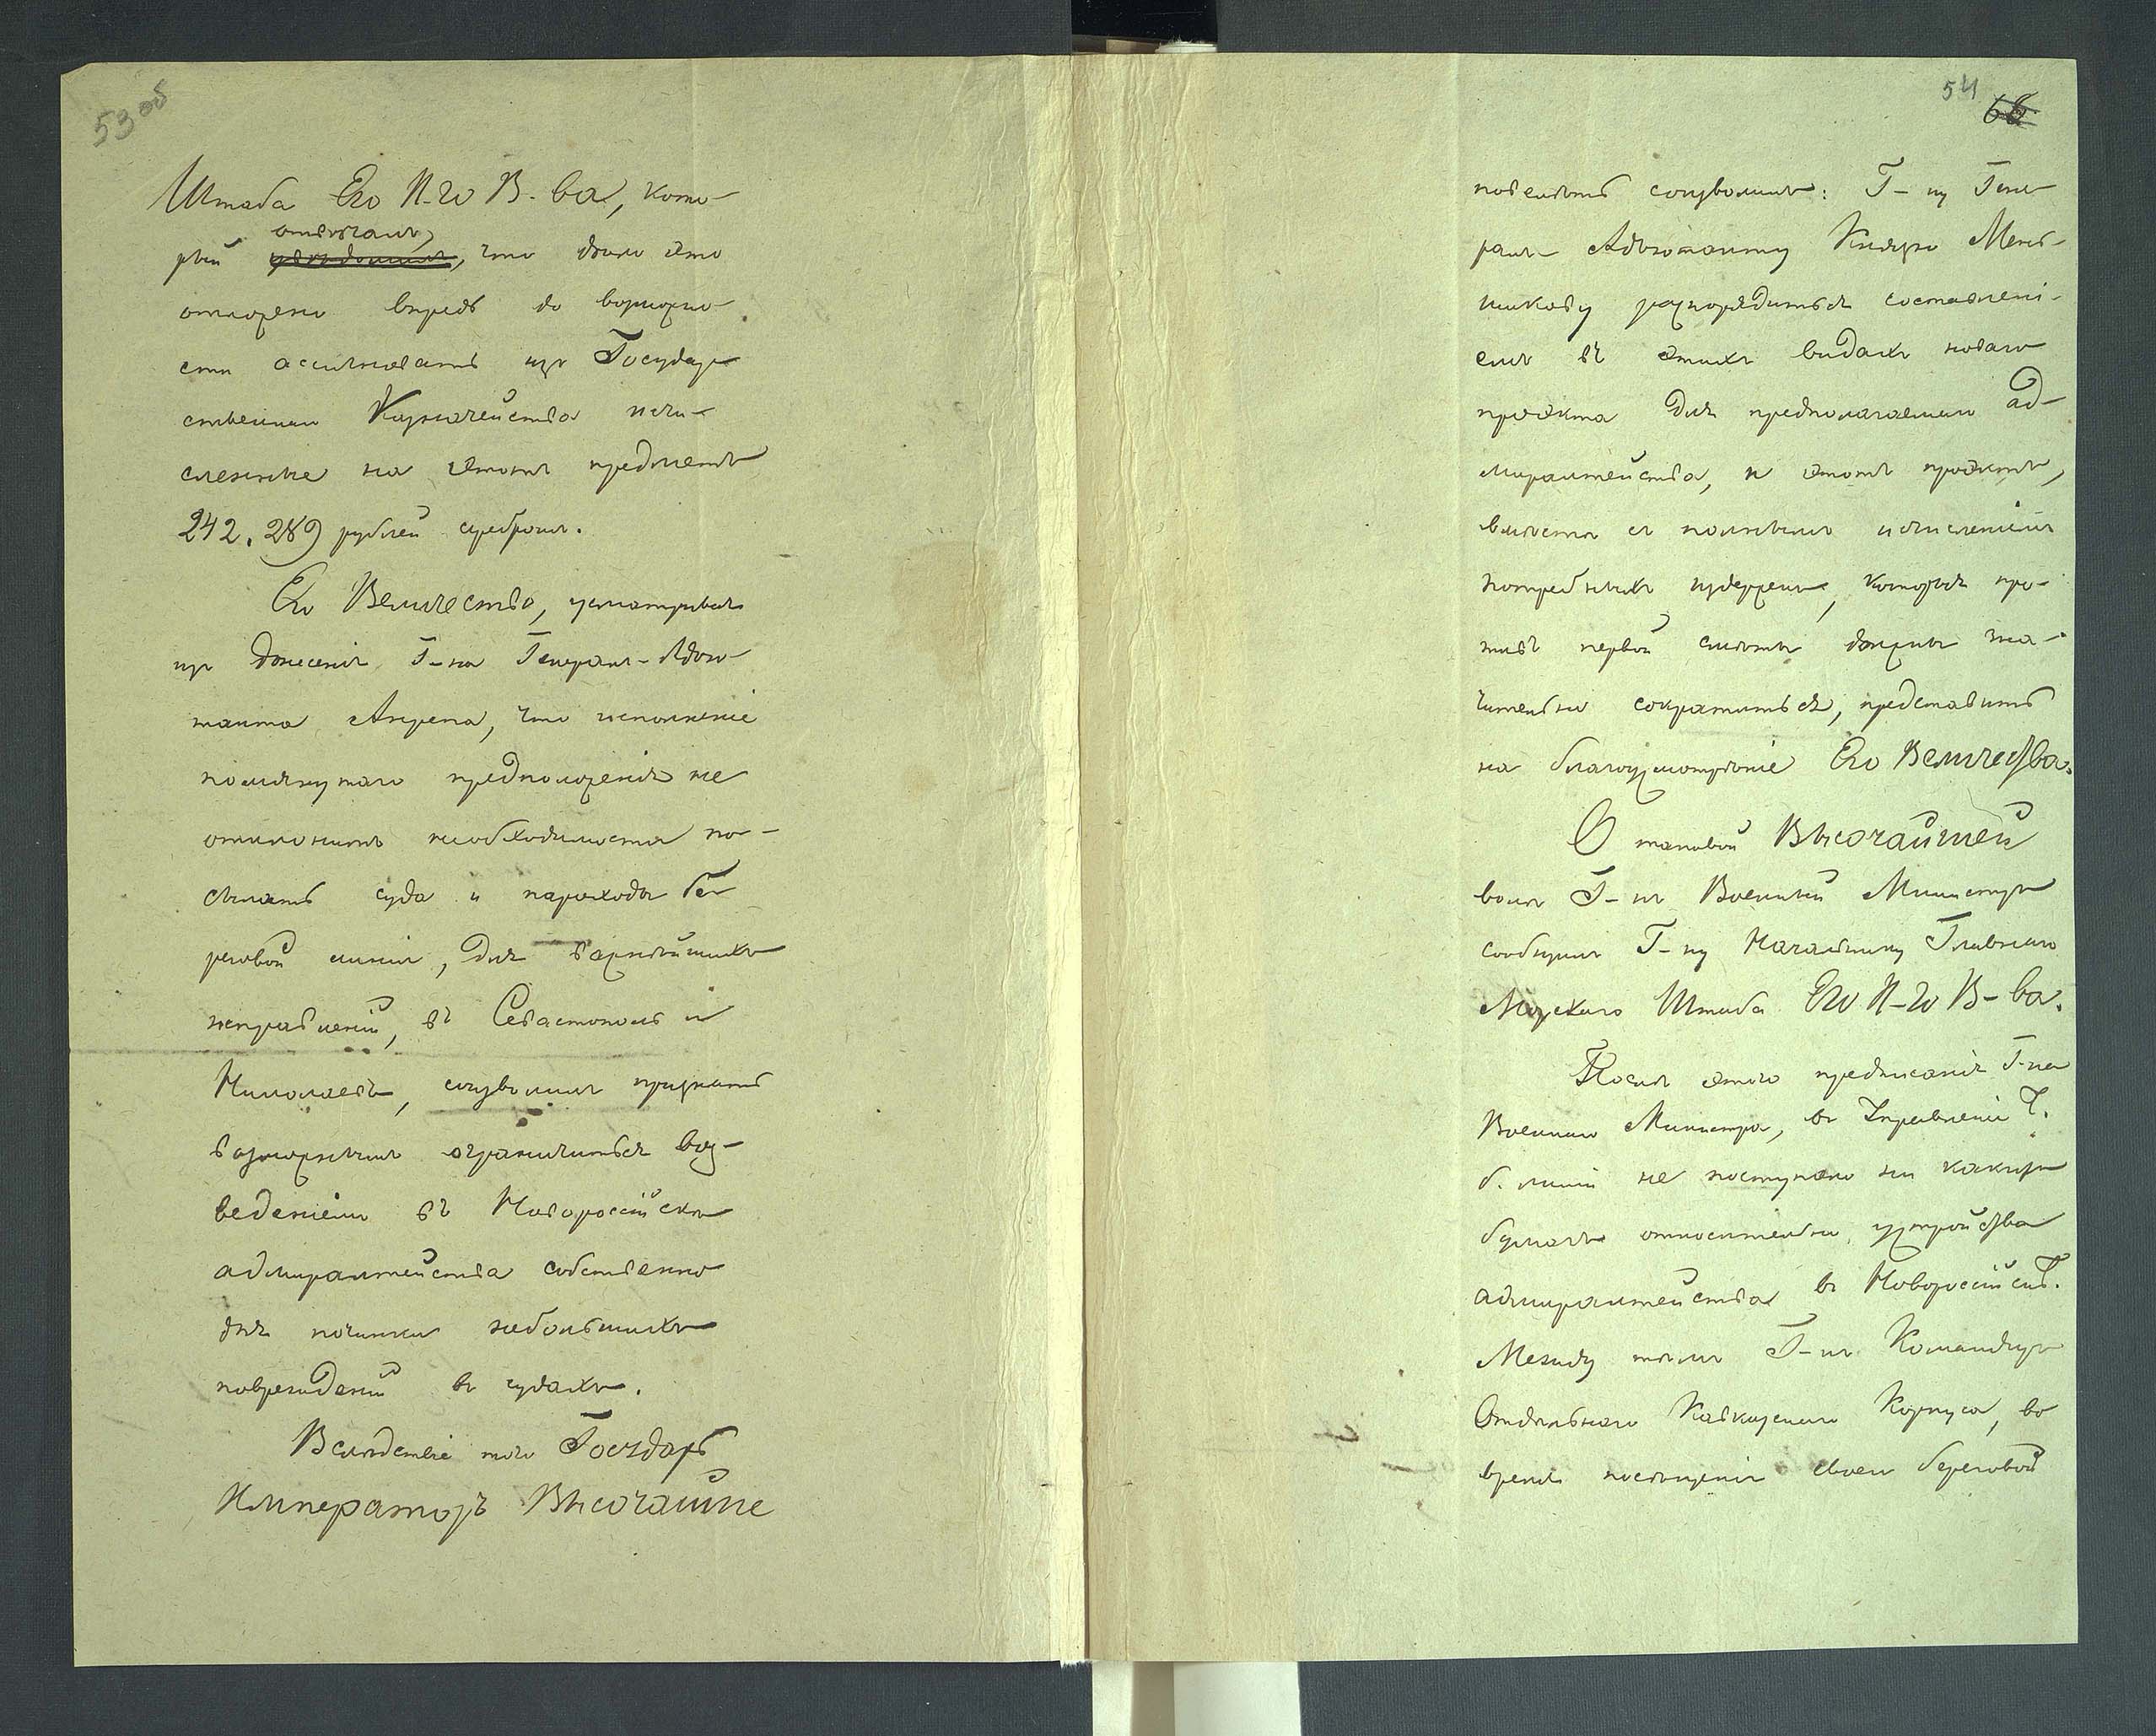 53 об
Штаба Его И-го В-ва, кото-
отвѣчалъ,
рый увѣдомилъ, что дѣло это
отложено впредь до возможно-
сти ассигновать изъ Государ-
ственнаго Казначейства исчи-
сленные на этотъ предметъ
242.289 рублей серебромъ.
Его Величество, усматривая
изъ донесенія Г-на Генералъ-Адъю-
танта Анрепа, что исполненіе
помянутаго предположенія не
отклонитъ необходимости по-
сылать суда и пароходы бе-
реговой линіи, для важнѣйшихъ
исправленій, въ Севастополь и
Николаевъ, соизволилъ признать
возможнымъ ограничиться воз-
веденіемъ въ Новороссійскѣ
адмиралтейства собственно
для починки небольшихъ
поврежденій въ судахъ.
Вслѣдствіе того Государь
Императоръ Высочайше
54
68
повелѣть соизволилъ: Г-ну Гене-
ралъ Адъютанту Князю Мень-
шикову распорядиться составлені-
емъ въ этихъ видахъ новаго
проэкта для предполагаемаго ад-
миралтейства, и этотъ проэктъ,
вмѣстѣ съ полнымъ исчисленіемъ
потребныхъ издержекъ, которыя про-
тивъ первой смѣты должны зна-
чительно сократиться, представить
на благоусмотрѣніе Его Величества.
О таковой Высочайшей
волѣ Г-нъ Военный Министръ
сообщилъ Г-ну Начальнику Главнаго
Морскаго Штаба Его И-го В-ва.
Послѣ этого предписанія Г-на
Военнаго Министра, въ Управленіи Ч.
б. линіи не поступало ни какихъ
бумагъ относительно устройства
адмиралтейства въ Новороссійскѣ.
Между тѣмъ Г-нъ Командиръ
Отдѣльнаго Кавказскаго Корпуса, во
время посѣщенія своего береговой